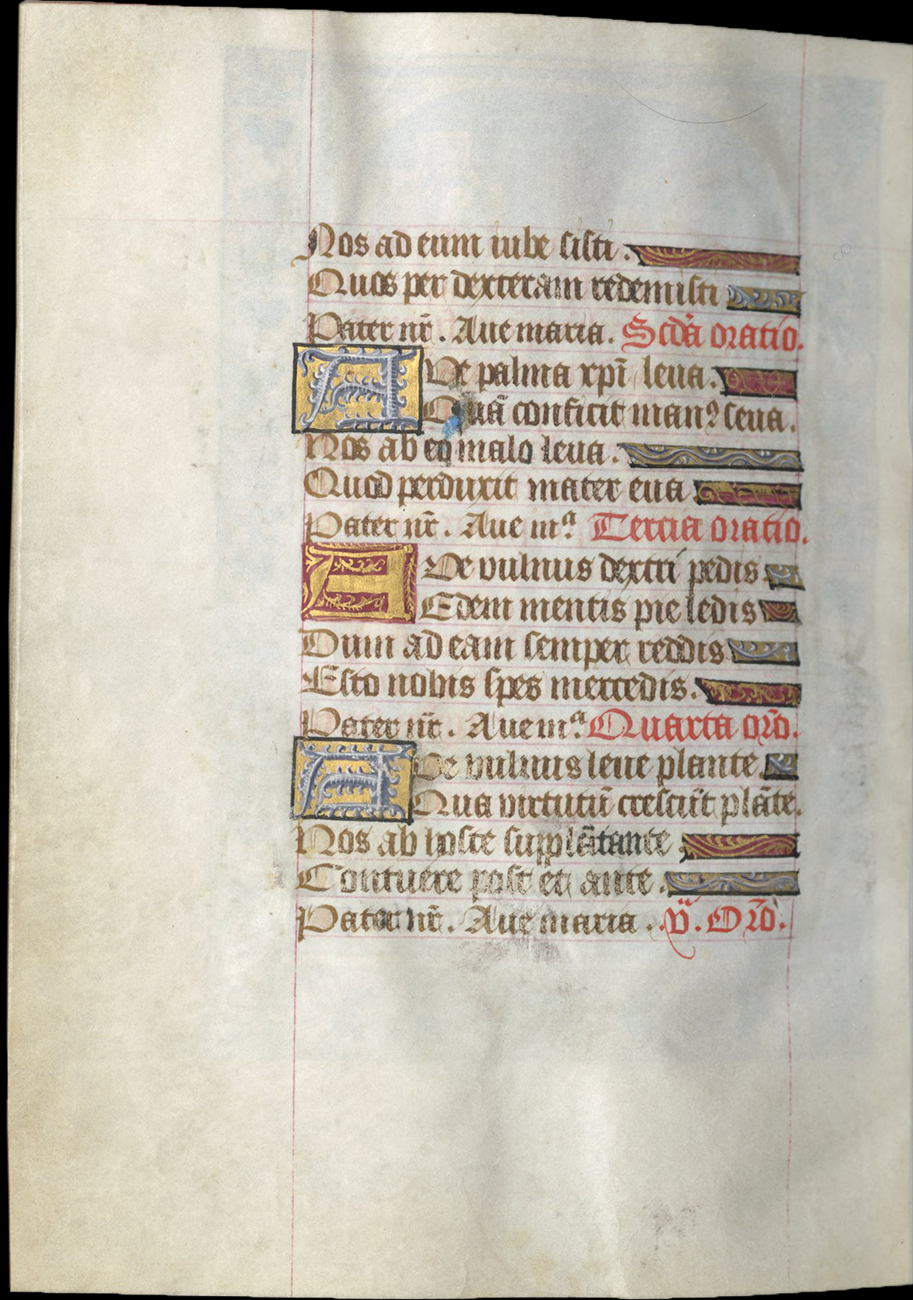 Nos ad eum iube sisti.
Quos per dexteram redemisti
Pater nr̄. Aue maria. Scd̄a oratio.
AVe palma xp̄i leua.
Quā conficit manꝰ seua.
Nos ab eo malo leua.
Quod perduxit mater eua
Pater nr̄. Aue mᵃ. Tercia oratio.
AVe vulnus dextri pedis
Edem mentis pie ledis
Dum ad eam semper reddis
Esto nobis spes mercedis.
Pater nr̄. Aue mᵃ. Quarta orō.
AVe vulnus leue plante.
Qua virtutū crescūt plāte.
Nos ab hoste supplātante
Contuere post et ante.
Pater nr̄. Aue maria. v̄. Orō.